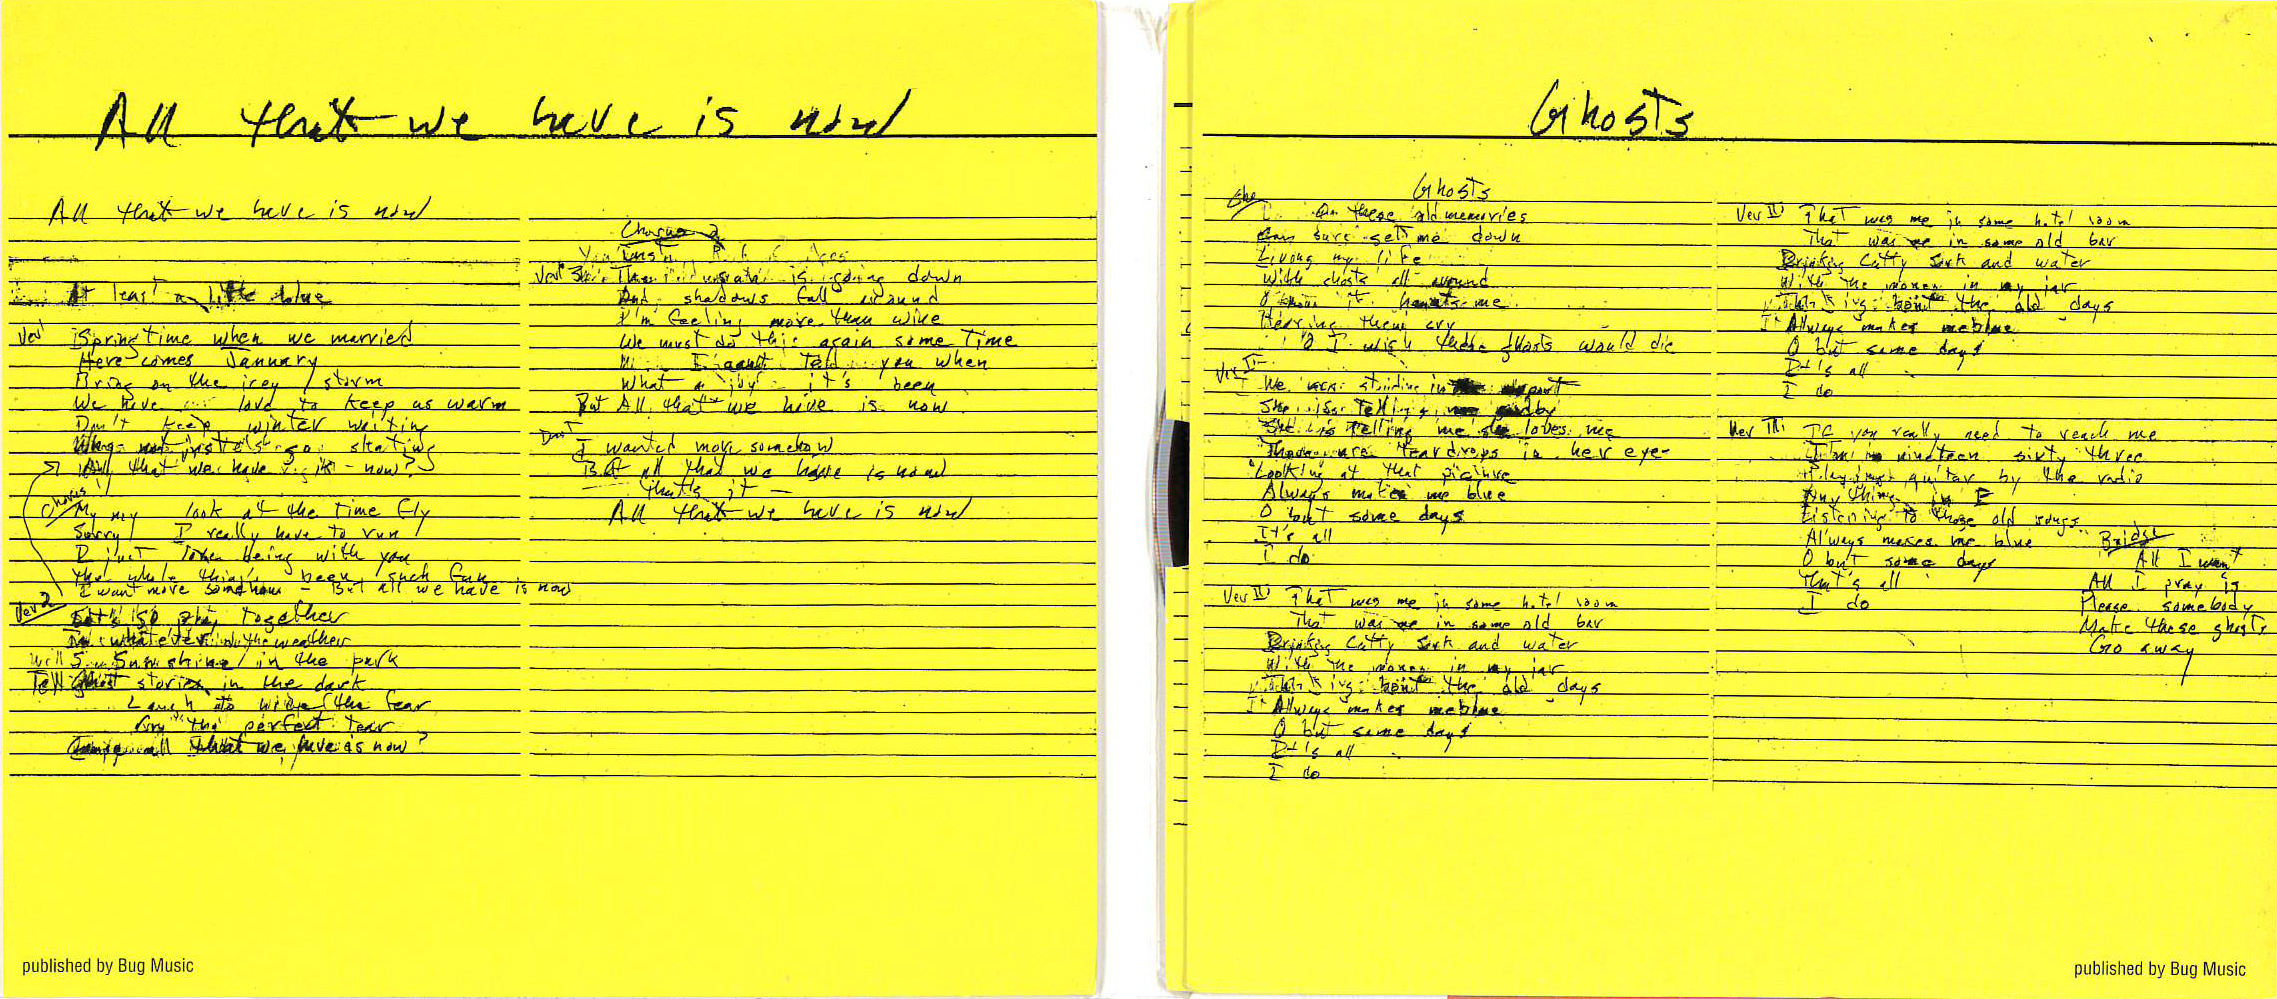 All that we have is now
All that we have is now
At least a little blue
Ver 1 Springtime when we married
Here comes January
Bring on the icey storm
We have our love to keep us warm
Don't keep winter waiting
go skating
All that we have right now?
Chorus My my look at the time fly
Sorry I really have to run
I just love being with you
The whole thing's been such fun
I want more somehow - But all we have is now
Ver 2 Let's go play together
In whatever the weather
Sunshine in the park
Tell Ghost stories in the dark
Laugh to hide the fear
Cry the perfect tear
all that we have is now?
Chorus 2
You
Ver 3 The is going down
And shadows fall around
I'm feeling more than wine
We must do this again some time
I can't tell you when
What a joy it's been
But All that we have is now
I wanted more somehow
But all that we have is now
that's it -
All that we have is now
published by Bug Music
Ghosts
Ghosts
Cho
On these old memories
Can sure get me down
Living my life
With ghosts all around
O how it haunts me
Hearing them cry
O I wish these ghosts would die
Ver I
We were standing in airport
She is telling me goodby
She is telling me she loves me
There are teardrops in her eye-
Looking at that picture
Always makes me blue
O but some days
It's all
I do
Ver II That was me in some hotel room
That was me in some old bar
Drinking Cutty Sark and water
With the money in my jar
the old days
It Allways makes me blue
O but some days
It's all
I do
Ver II That was me in some hotel room
That was me in some old bar
Drinking Cutty Sark and water
With the money in my jar
the old days
It Allways makes me blue
O but some days
It's all
I do
Ver III If you really need to reach me
I'm in nineteen sixty three
Playing guitar by the radio
Any thing in E
Listening to those old songs
Always makes me blue
O but some days
That's all
I do
Bridge
All I want
All I pray is
Please somebody
Make these ghosts
Go away
published by Bug Music